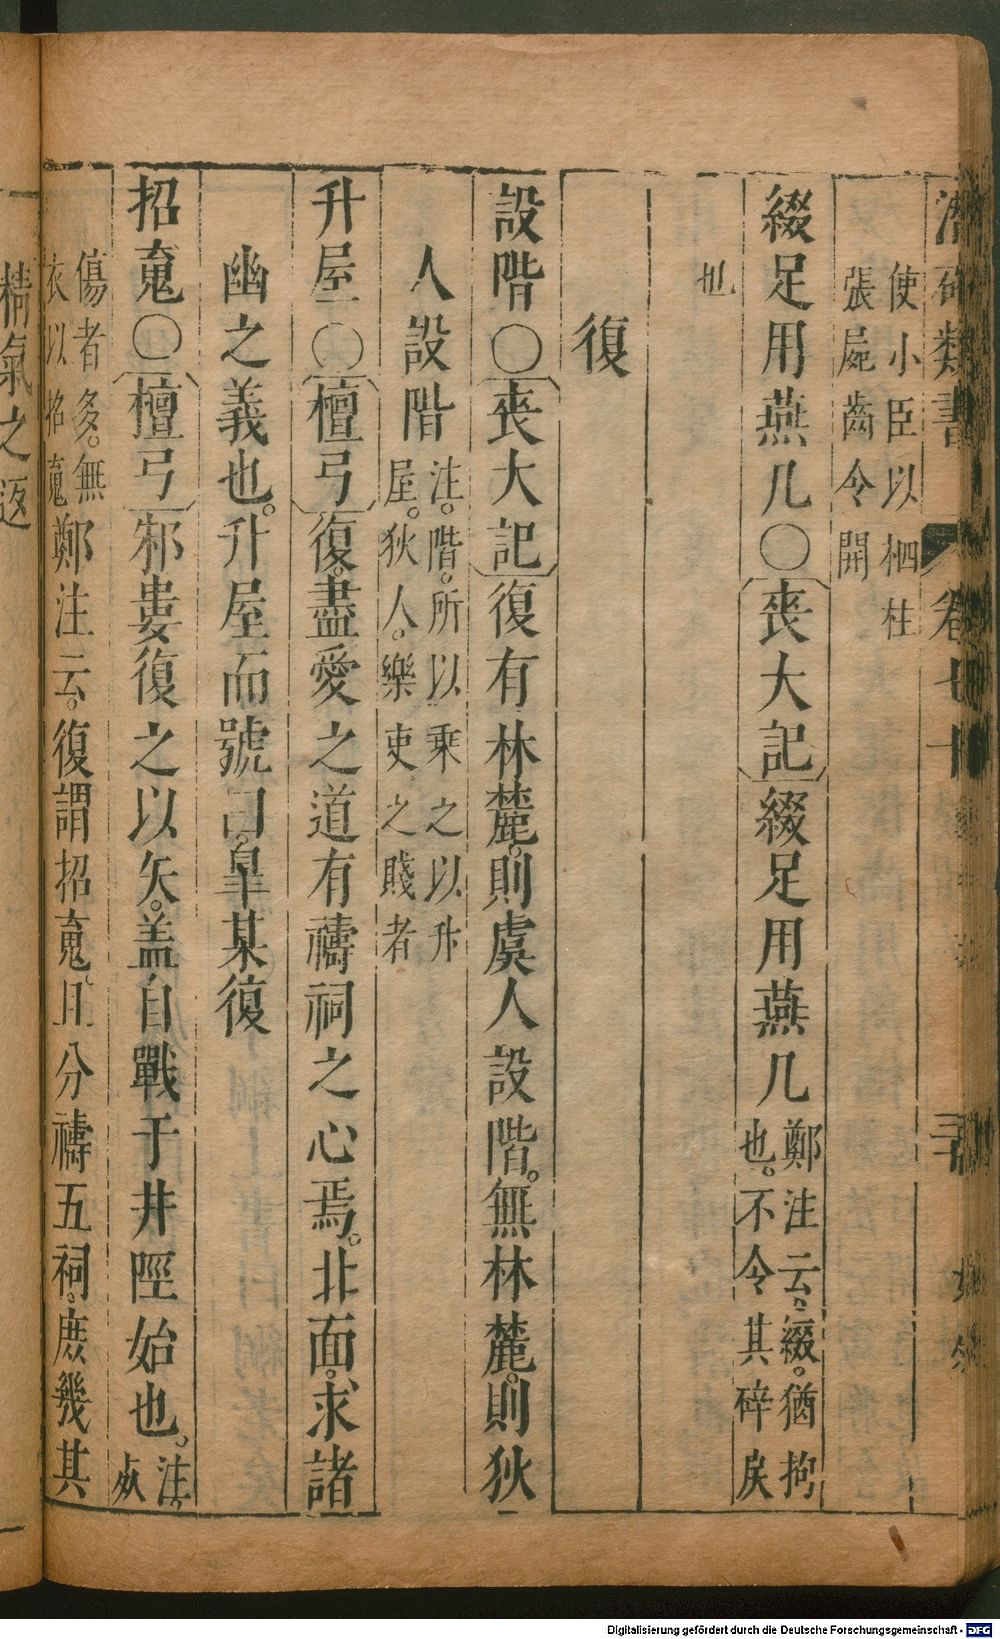 類書 卷七十
使小臣以柶柱
張屍齒令開
綴足用燕几〇喪大記綴足用燕几鄭注云。綴。猶拘
也。不令其碎戾
也
復
設階〇喪大記復有林麓。則虞人設階。無林麓。則狄
人設階注。階。所以乗之以升
屋。狄人。樂吏之賤者
升屋〇檀弓復。盡愛之道有禱祠之心焉。北面。求諸
幽之義也。升屋而號。曰。皐某復
招䰟〇檀弓邾婁復之以矢。盖自戰于井陘始也。注。
傷者多。無
衣以招䰟鄭注云。復謂招䰟。且分禱五祠。庶幾其
精氣之返
Digitalisierung gefördert durch die Deutsche Forschungsgemeinschaft - DFG